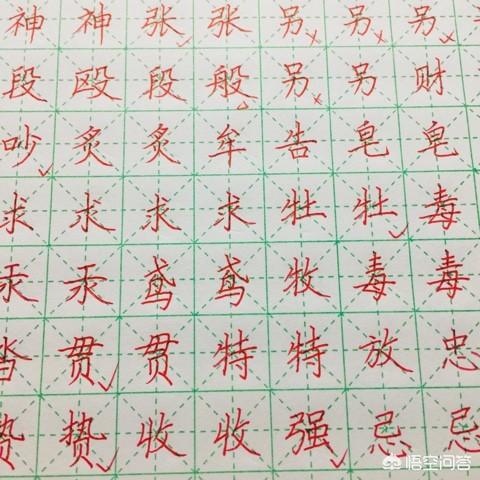 神神张张另另另
段殴段般另另财
吵炙炙牟告皂皂
求求求求牡牡毒
汞汞鸢鸢牧毒毒
沓贯贯特特放忠
贽挚收收强忌忌
悟空问答